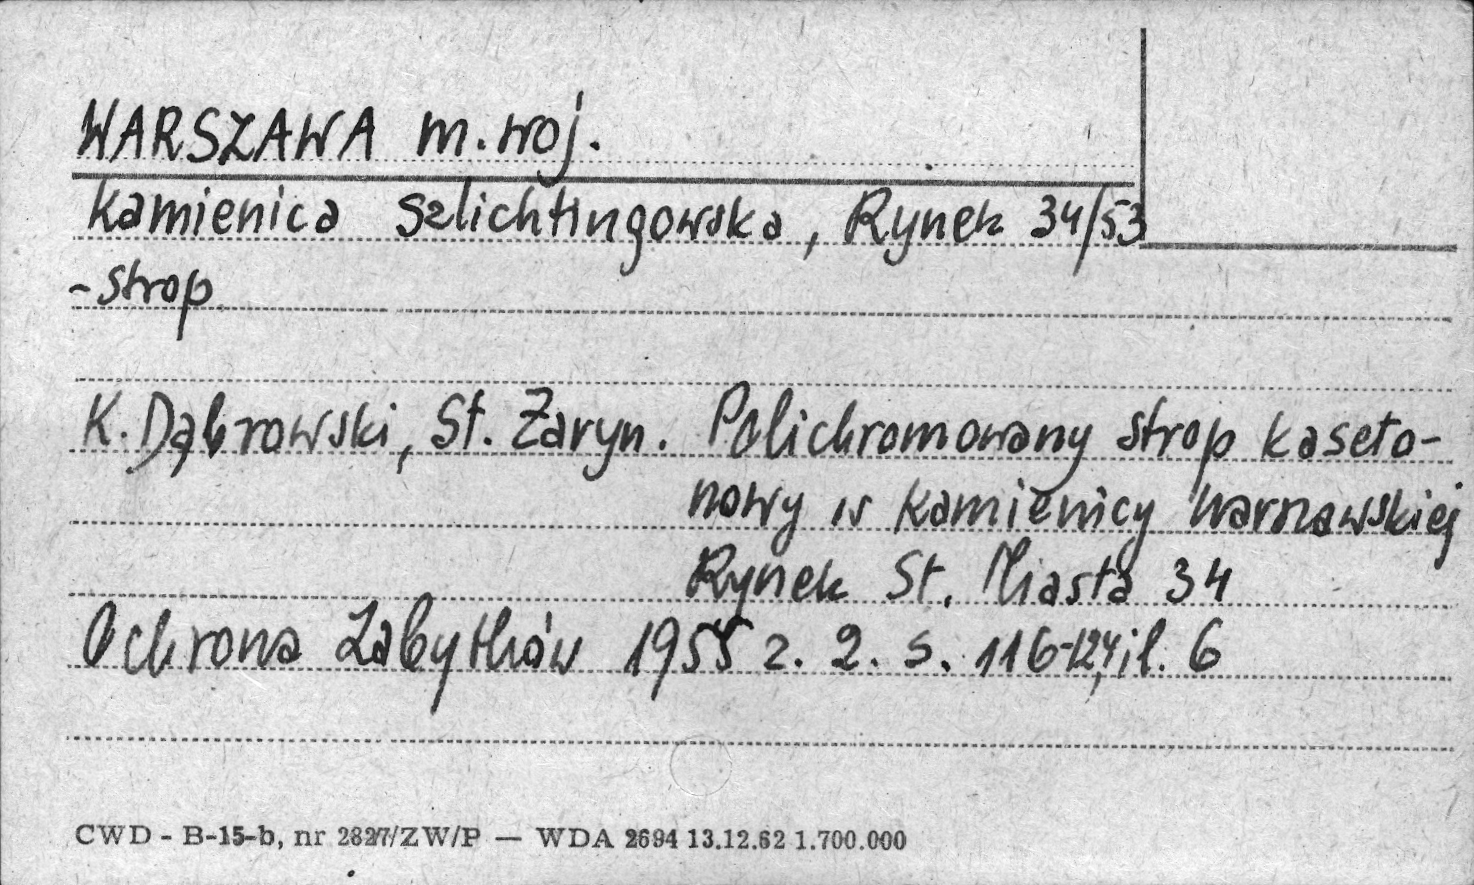 WARSZAWA m. woj.
Kamienica Szlichtingowska, Rynek 34/53
- strop
K. Dąbrowski, St. Żaryn. Polichromowany strop kaseto-
nowy w kamienicy warszawskiej
Rynek St. Miasta 34
Ochrona Zabytków 1955 z. 2. s. 116-124, il. 6
CWD - B-15-b, nr 2827/ZW/P — WDA 2694 13.12.62 1.700.000